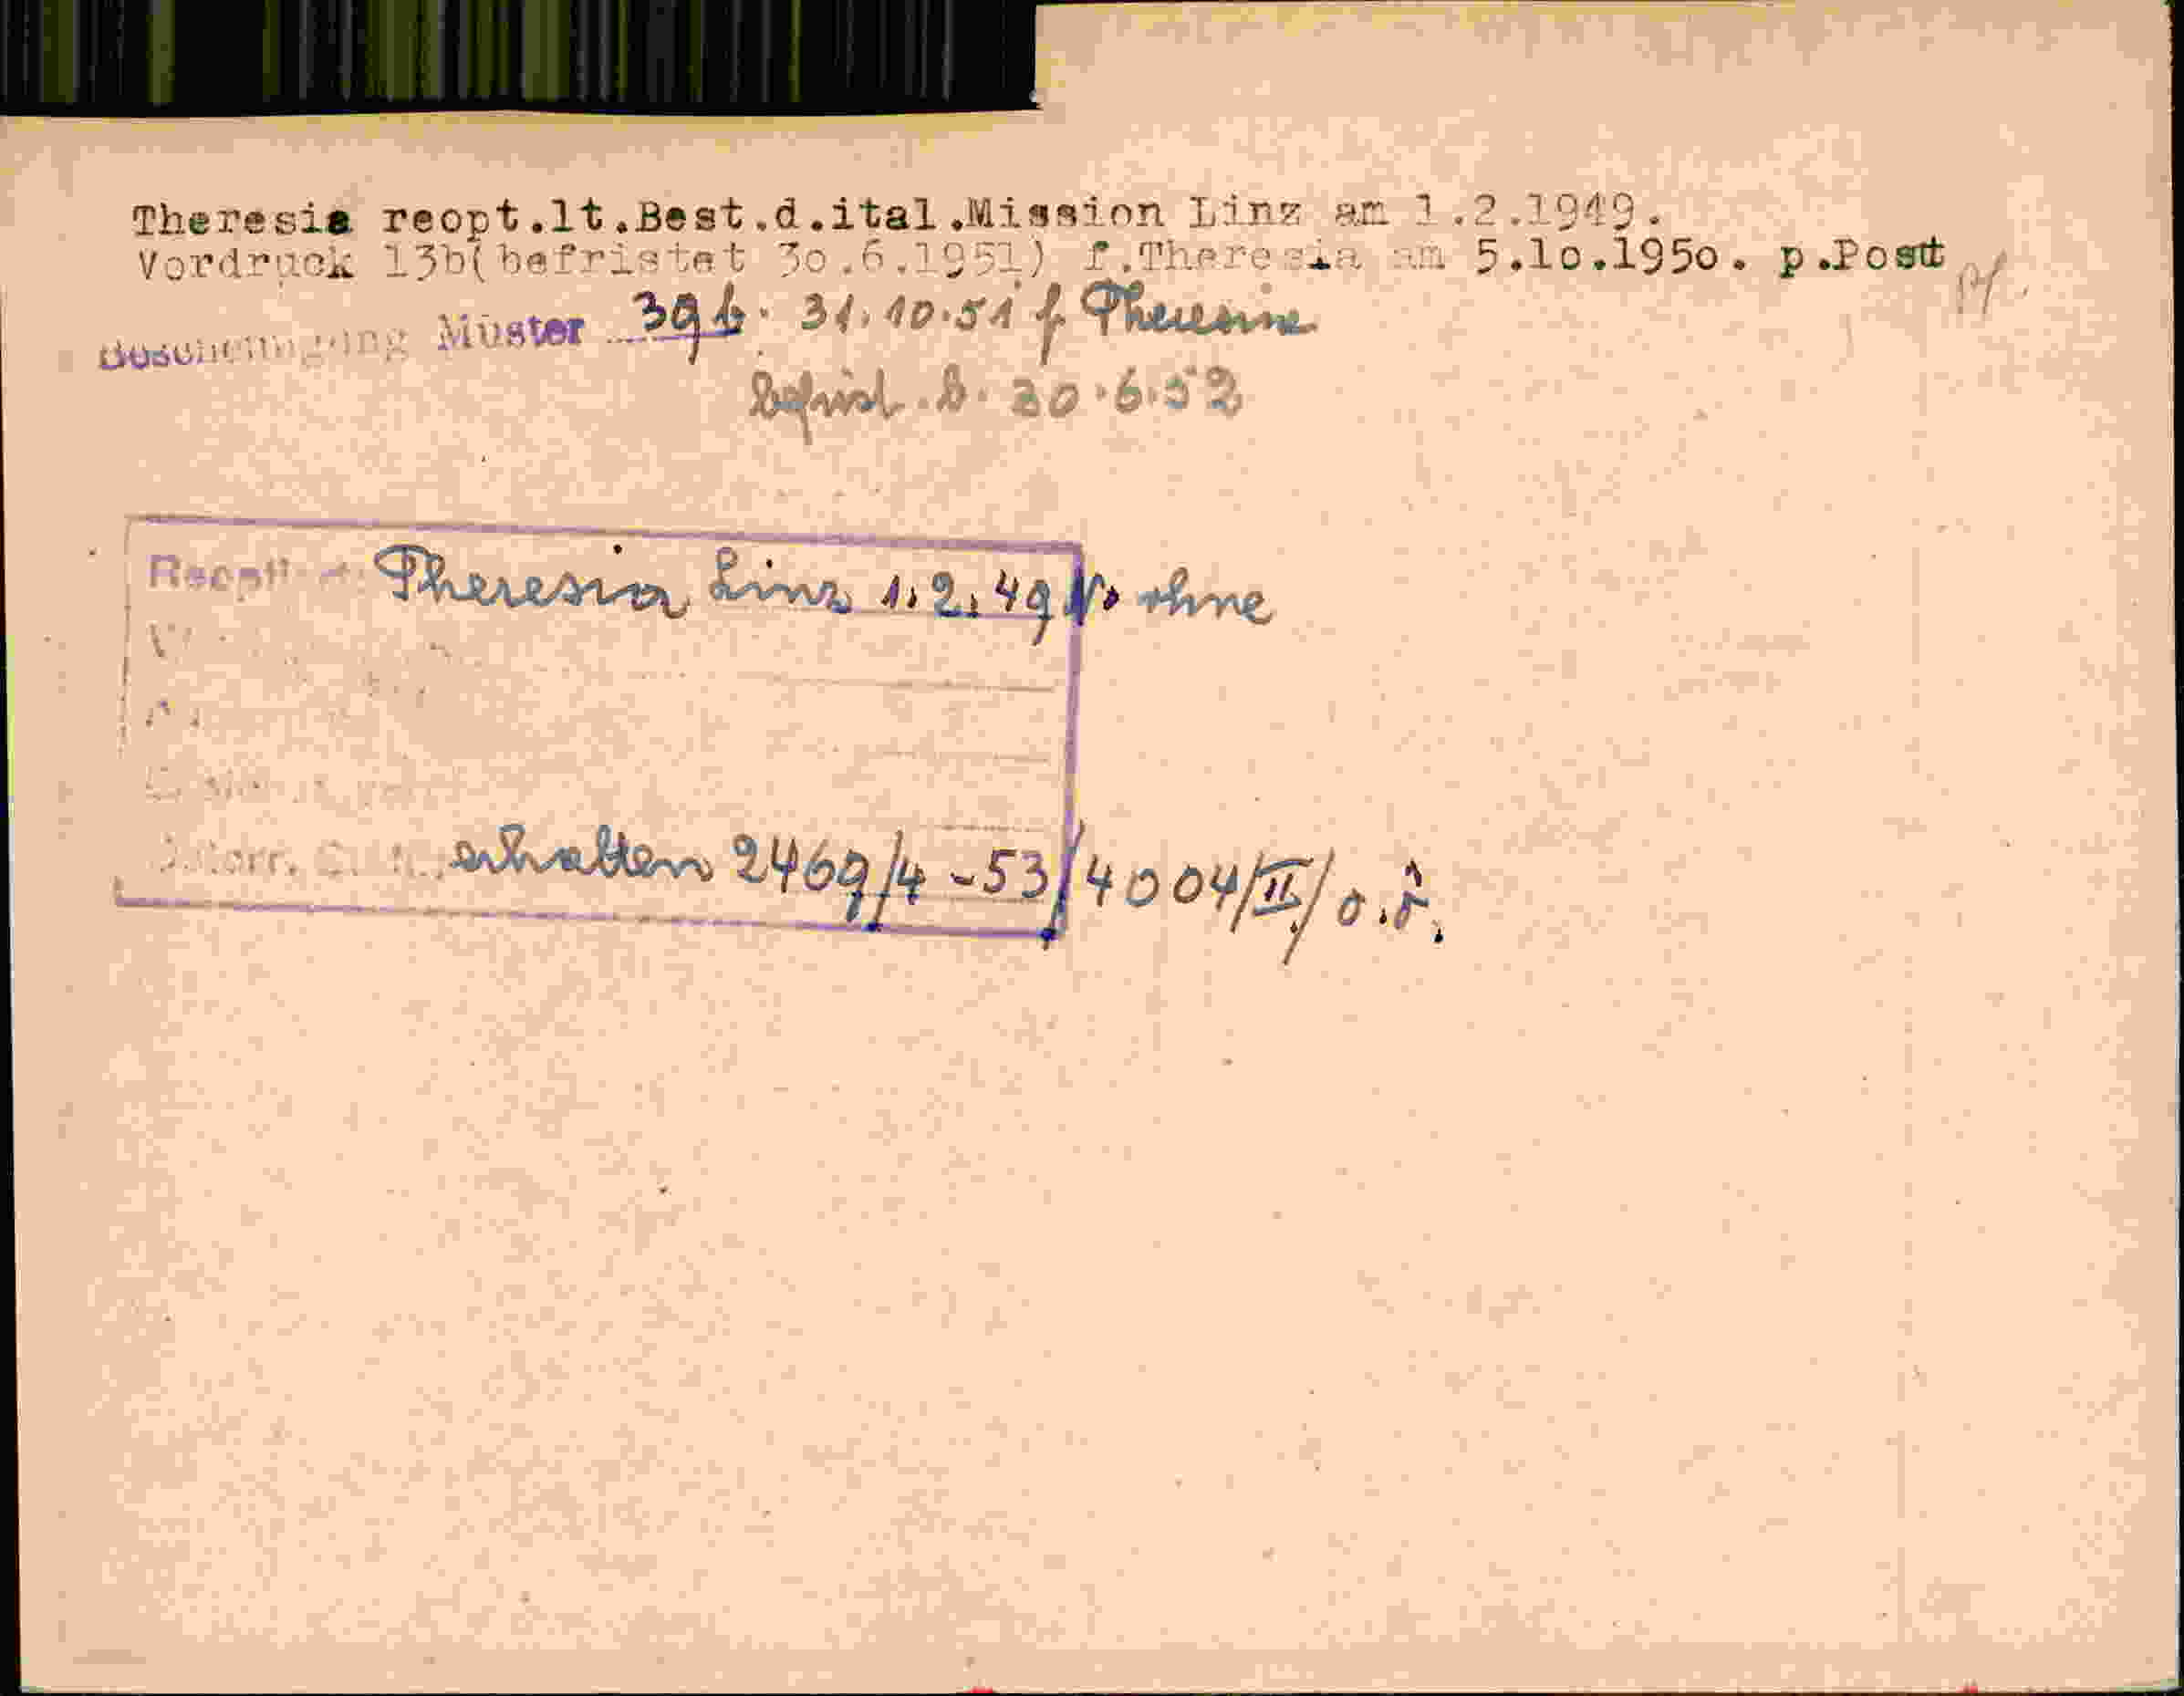 Theresia reopt.lt.Best.d.ital.Mission Linz am 1.2.1949.
Vordruck 13b(befristet 3o.6.1951) f.Theresia am 5.1o.195o. p.Postt
Bescheinigung Muster 39b. 31.10.51 f Theresia
befrist. b. 30.6.52
Theresia Linz 1.2.49 No ohne
erhalten 2469/4-53/4004/II/